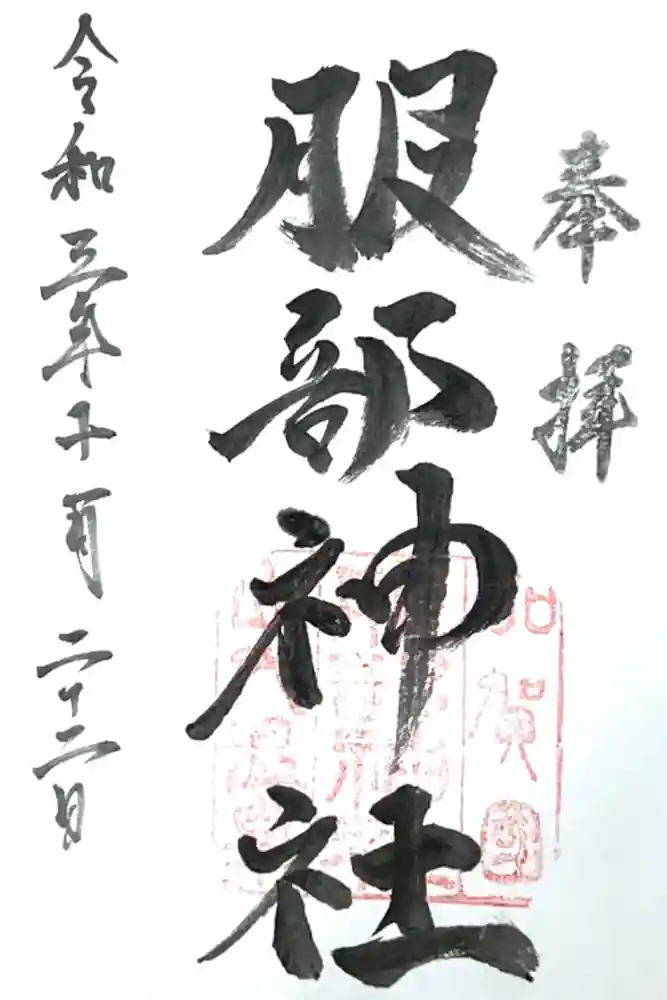 奉拝
服部神社
加賀
令和三年十月二十二日